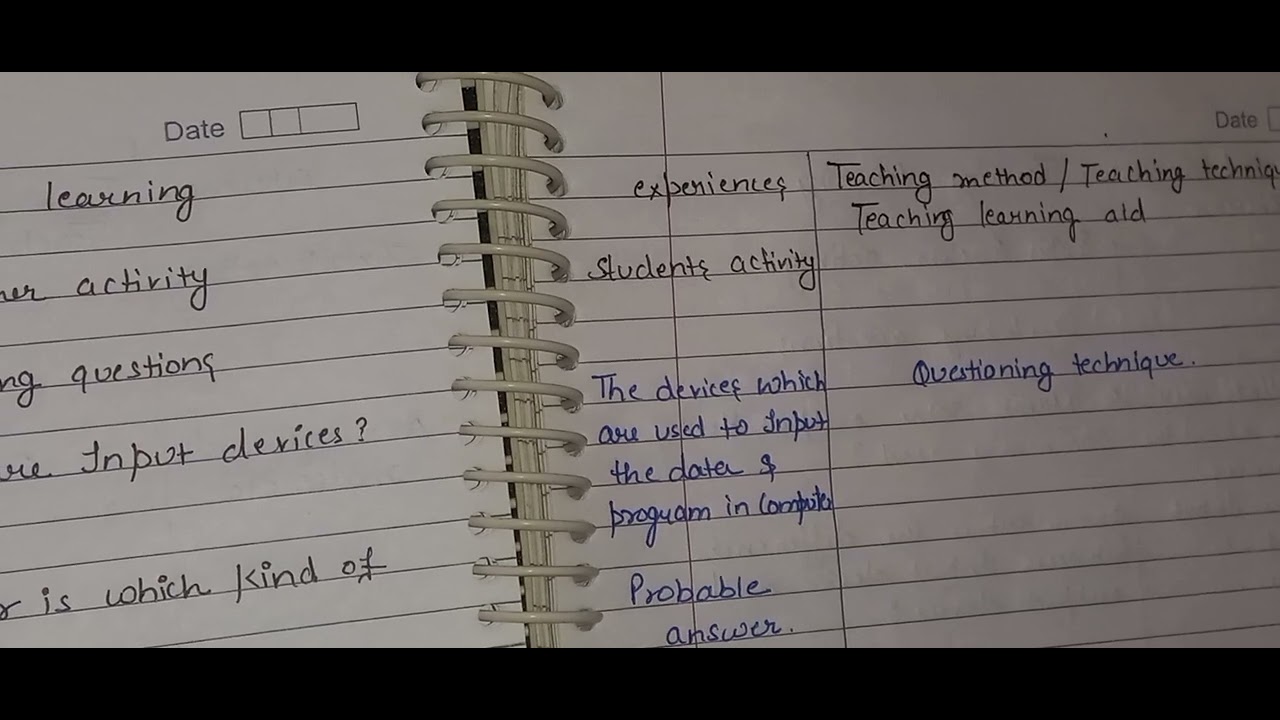 Date
learning
activity
questions
Input devices?
is which kind of
Date
experiences
Teaching method / Teaching
Teaching learning aid
students activity
The devices which
are used to Input
the data &
program in Computer
Questioning technique.
Probable
answer.